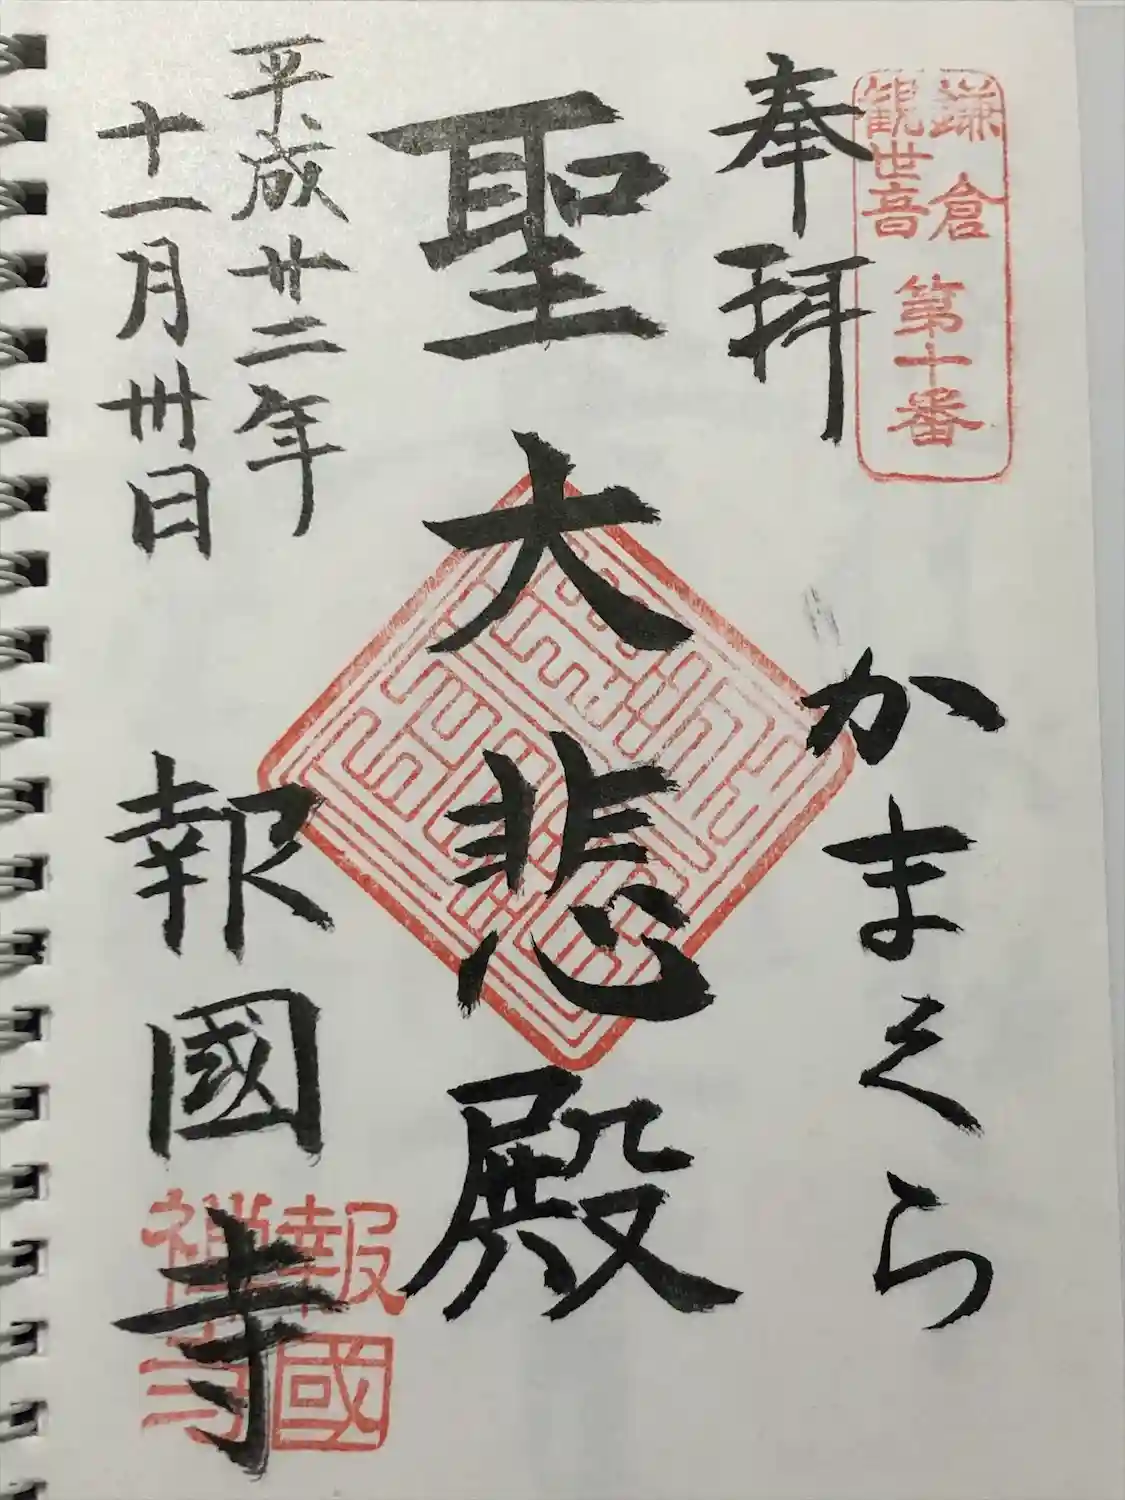 鎌倉
観世音
第十番
奉拝
かまくら
聖大悲殿
平成廿二年
十一月卅日
報國寺
報國
禅寺